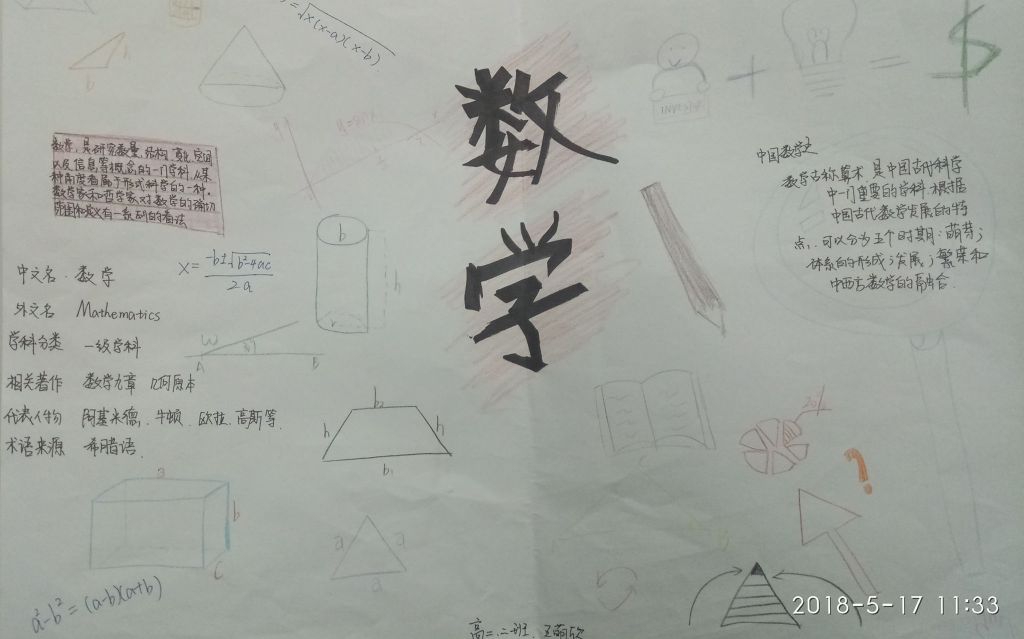 y=√x(x-a)(x-b)
b
h
INVESTOR
+
=
$
数学
数学，是研究数量、结构、变化、空间
以及信息等概念的一门学科，从某
种角度看属于形式科学的一种。
数学家和哲学家对数学的确切
范围和定义有一系列的看法
中国数学史
数学古称算术，是中国古代科学
中一门重要的学科，根据
中国古代数学发展的特
点，可以分为五个时期：萌芽；
体系的形成；发展；繁荣和
中西方数学的融合．
中文名．数学
外文名 Mathematics
学科分类 一级学科
相关著作 数学九章 几何原本
代表人物 阿基米德、牛顿、欧拉、高斯等．
术语来源 希腊语．
x=(-b±√b²-4ac)/2a
b
h
r
ω
A
B
b₂
h
h
b₁
20%
?
a
b
c
a
a
a
a²-b²=(a-b)(a+b)
高二.二班．王萌欣
2018-5-17 11:33